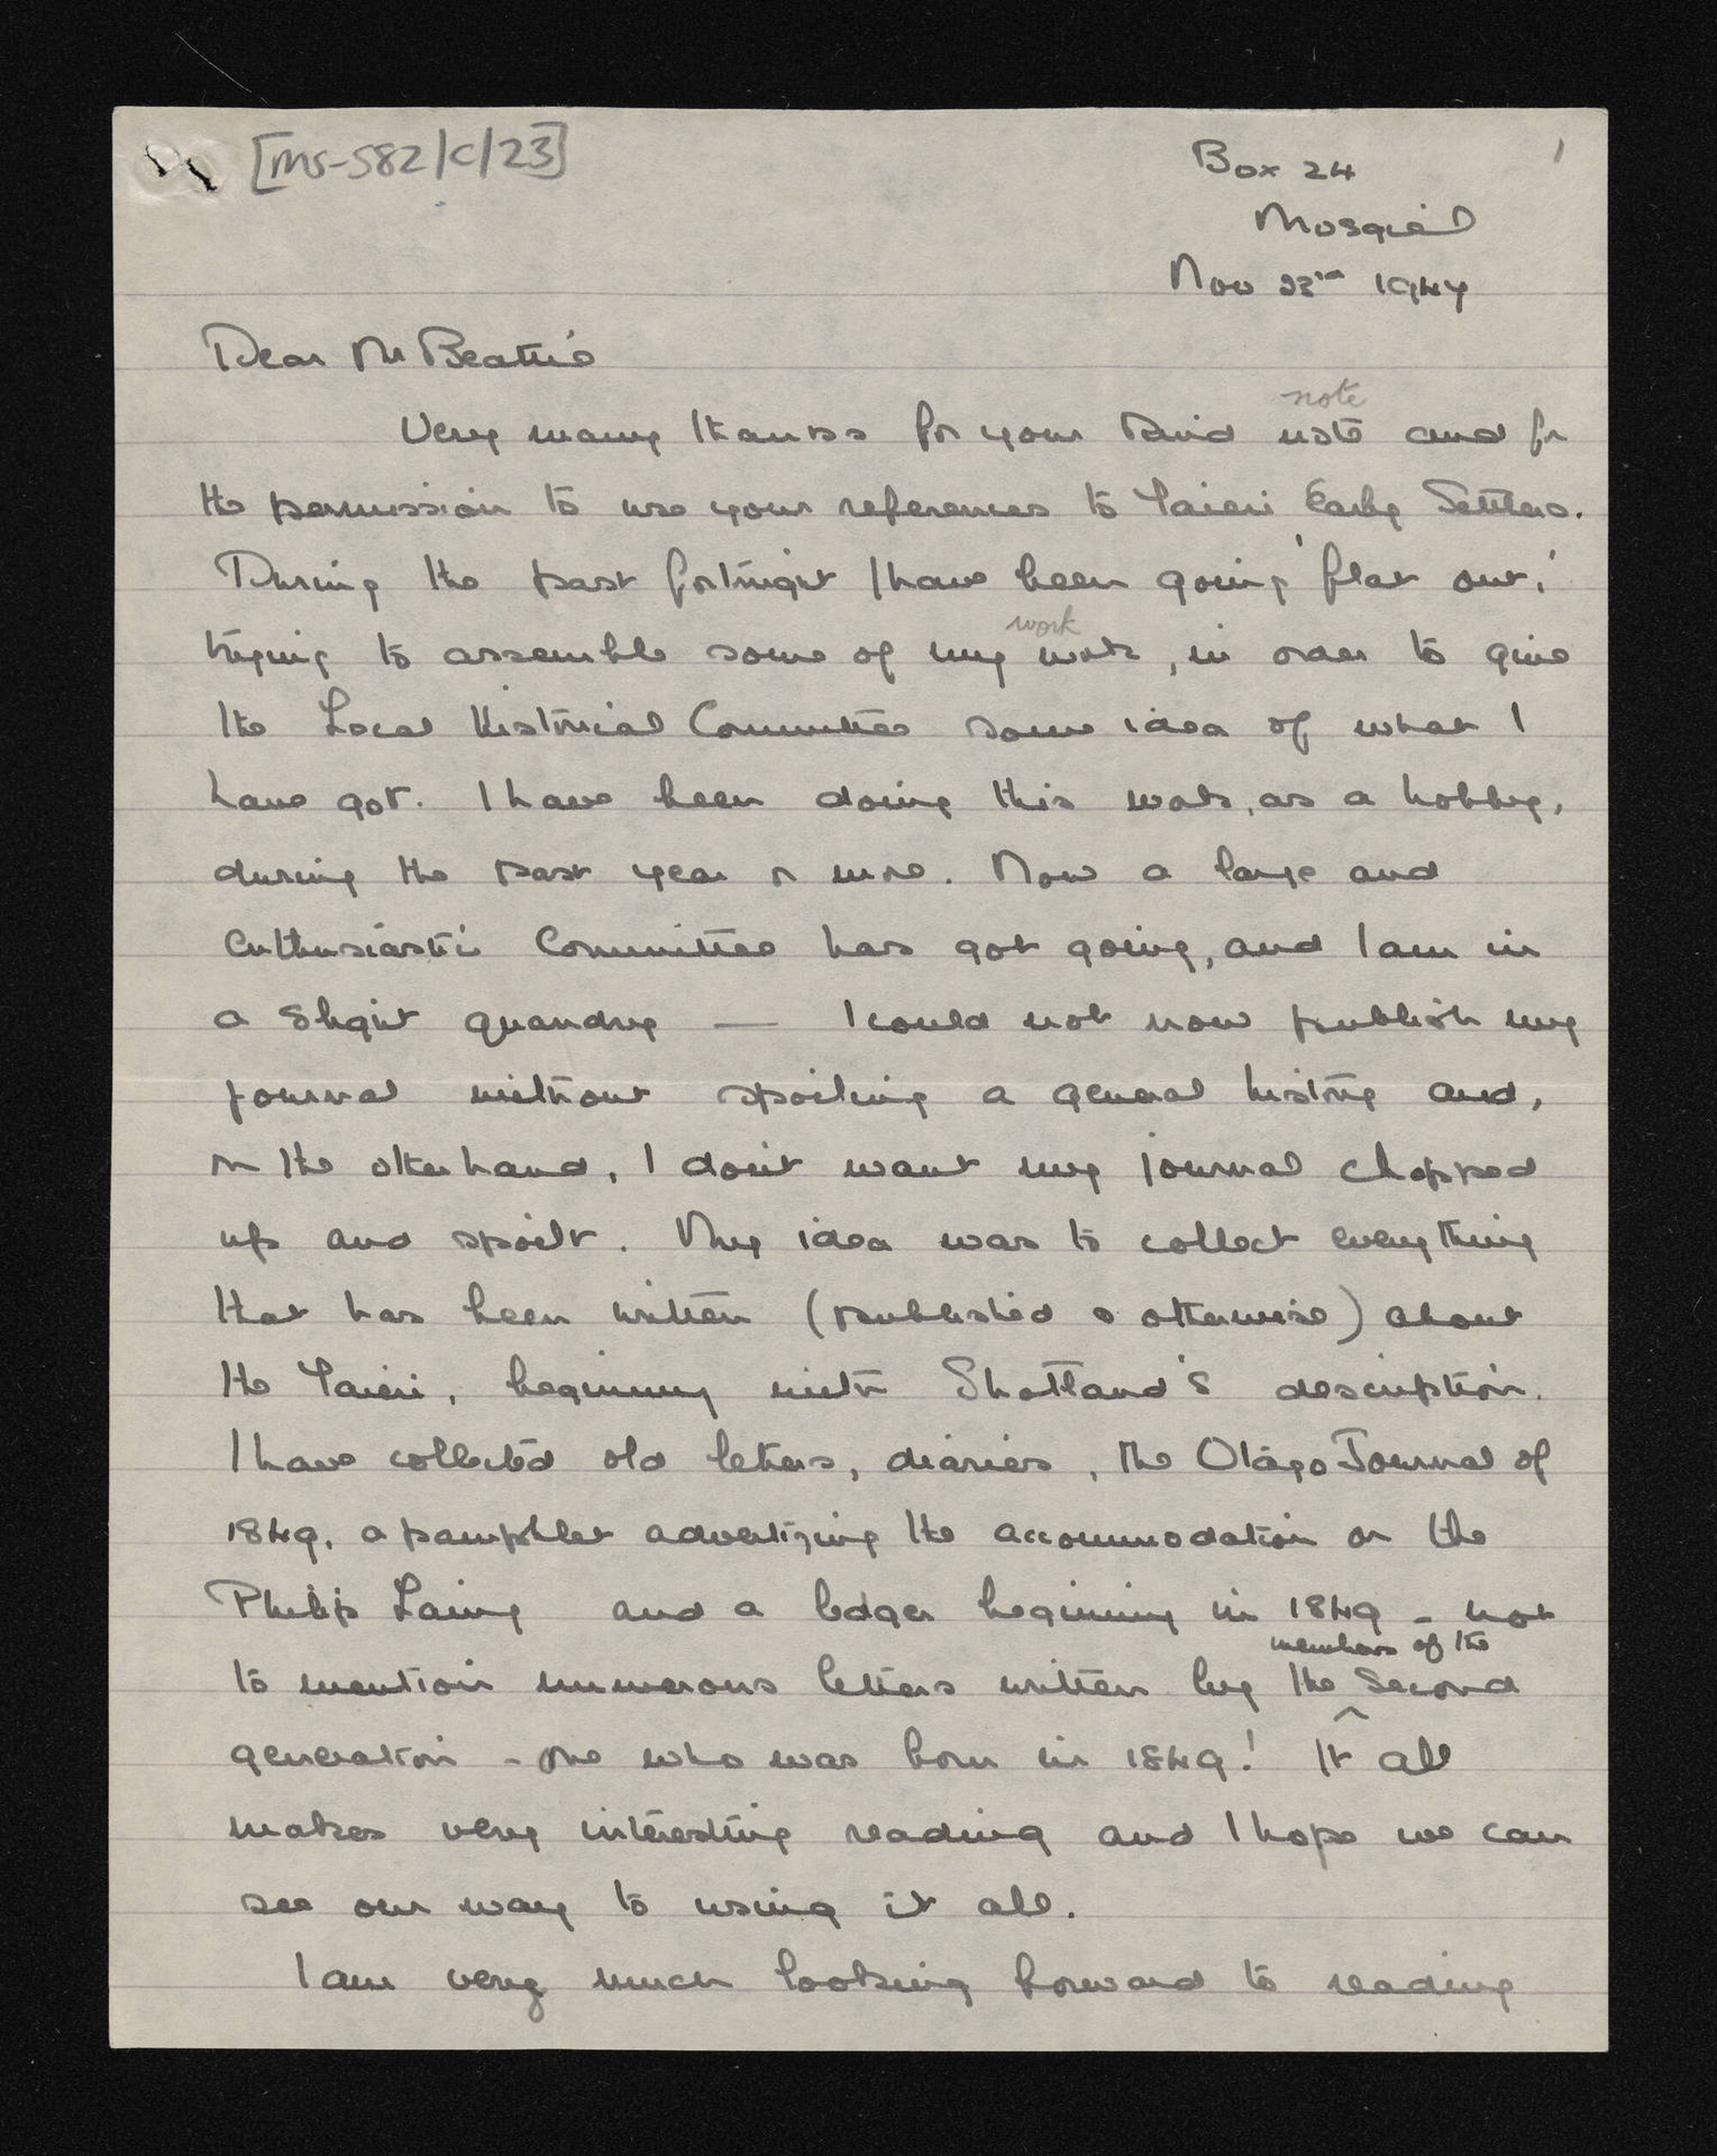 [MS-582/C/23]
1
Box 24
Mosgiel
Nov 23rd 1947
Dear Mr Beattie
note
Very many thanks for your kind note and for
the permission to use your references to Taieri Early Settlers.
During the past fortnight I have been going 'flat out,'
work
trying to assemble some of my work, in order to give
the Local Historical Committee some idea of what I
have got. I have been doing this work, as a hobby,
during the past year or more. Now a large and
enthusiastic Committee has got going, and I am in
a slight quandry — I could not now publish my
journal without spoiling a general history and,
on the other hand, I don't want my journal chopped
up and spoilt. My idea was to collect everything
that has been written (published & otherwise) about
the Taieri, beginning with Shortland's description.
I have collected old letters, diaries, the Otago Journal of
1849, a pamphlet advertizing the accommodation on the
Philip Laing and a ledger beginning in 1849 - not
members of the
to mention numerous letters written by the ^ second
generation - one who was born in 1849! It all
makes very interesting reading and I hope we can
see our way to using it all.
I am very much looking forward to reading